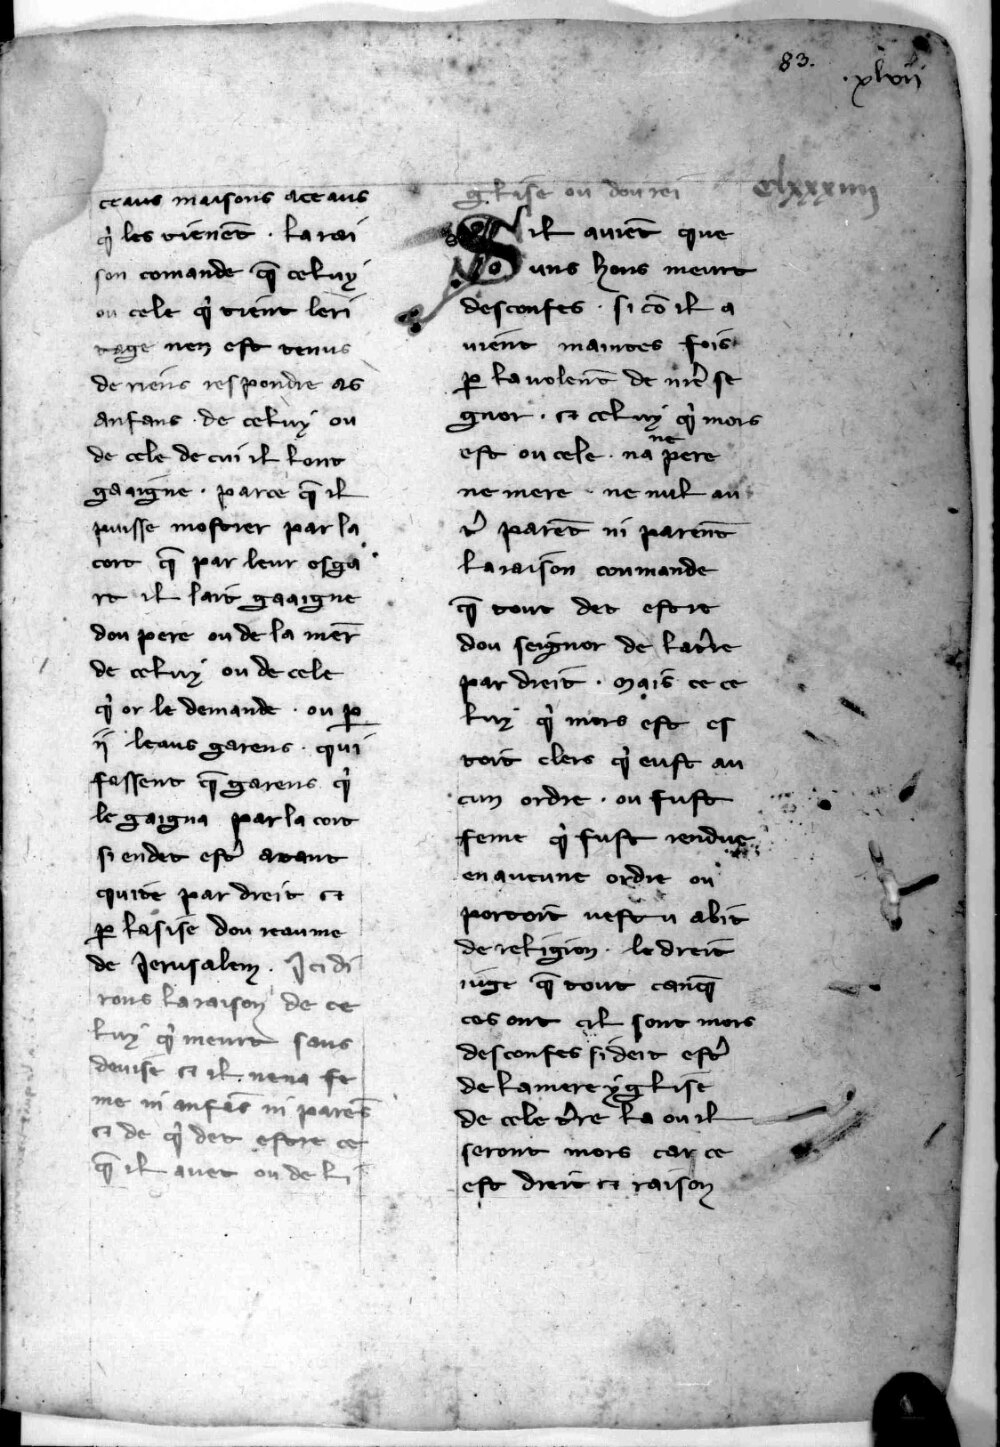 83.
.xlvii
ceaus maisons a ceaus
q̇ les tienēt . la rai
son comande q̄ celuy
ou cele q̇ tient leri
tage nen est tenus
de riens respondre as
anfans . de celuy ou
de cele de cui il lont
gaaigne . parce q̄ il
puisse mostrer par la
cort q̄ par leur esga
rt il lait gaaigne
dou pere ou de la mer̄
de celuy ou de cele
q̇ or le demande . ou ꝑ
ij leaus garens . qui
fassent q̄ garens q̇
le gaigna par la cort
si en det estr̄ atant
quite par dreit et
ꝑ lasise dou reaume
de Jerusalem . Ici di
rons la raison de ce
luy q̇ meurt sans
devise et il nena fe
me ni anfās ni parēs
et de q̇ det estre ce
q̄ il avet ou de li
glise ou dou rei
clxxxiiii
Sil avient que
uns hons meurt
desconfes . si cō il a
vient maintes fois
ꝑ la volent̄ de nr̄e se
gnor . et celuy q̇ mors
est ou cele . na ne pere
ne mere . ne nul au
tr̄ parēt ni parent̄
la raison coumande
q̄ tout det estre
dou seignor de la tr̄e
par dreit . mais ce ce
luy q̇ mors est es
toit clers q̇ eust au
cun ordre . ou fust
feme q̇ fust rendue
en aucune ordre ou
portoit vestu abit
de religion . le dreit
iuge q̄ tout canq̄
ces ont cil sont mors
desconfes si deit estr̄
de la mere yglise
de cele tr̄re la ou il
seront mors car ce
est dreit et raison